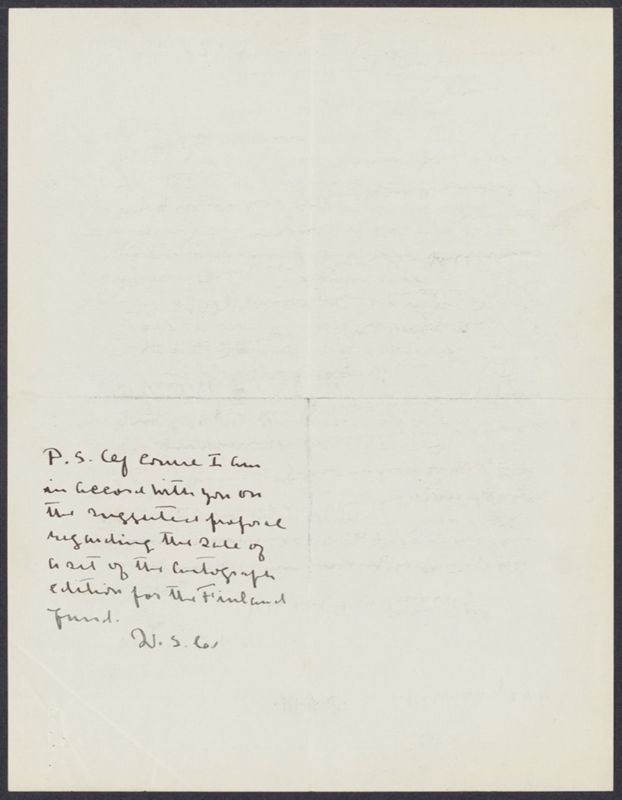 P.S. Of course I am
in accord with you on
the suggested proposal
regarding the sale of
a set of the Autograph
edition for the Finland
Fund.
W. S.